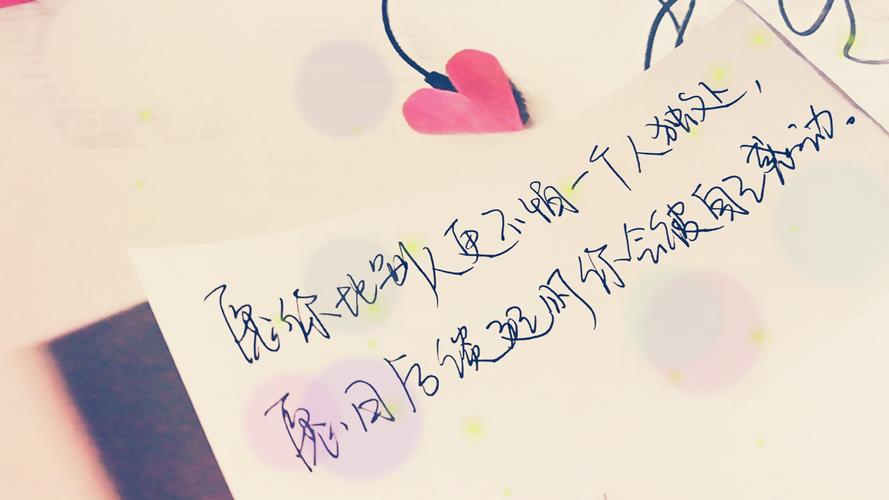 愿你比别人更不怕一个人独处，
愿日后谈起时你会被自己感动。